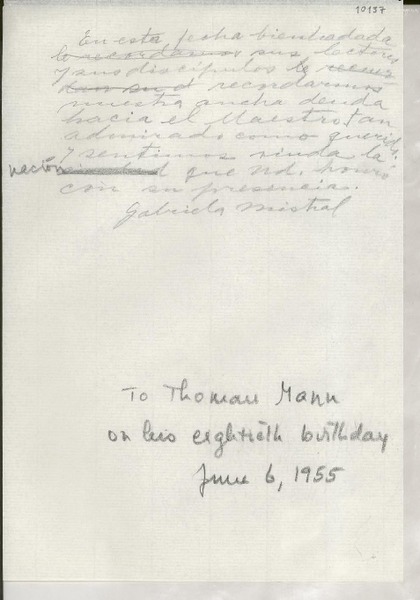 10137
En esta fecha bienhadada
le recordamos sus lectores
y sus discípulos le recordamos
nuestra ancha deuda
hacia el Maestro tan
admirado como querido,
y sentimos viuda la
nación que Ud. honró
con su presencia.
Gabriela Mistral
To Thomas Mann
on his eightieth birthday
June 6, 1955